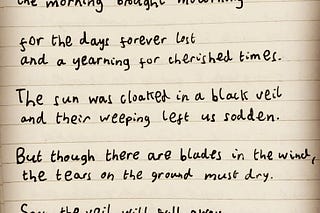 the morning brought mourning
for the days forever lost
and a yearning for cherished times.
The sun was cloaked in a black veil
and their weeping left us sodden.
But though there are blades in the wind,
the tears on the ground must dry.
the veil will fall away